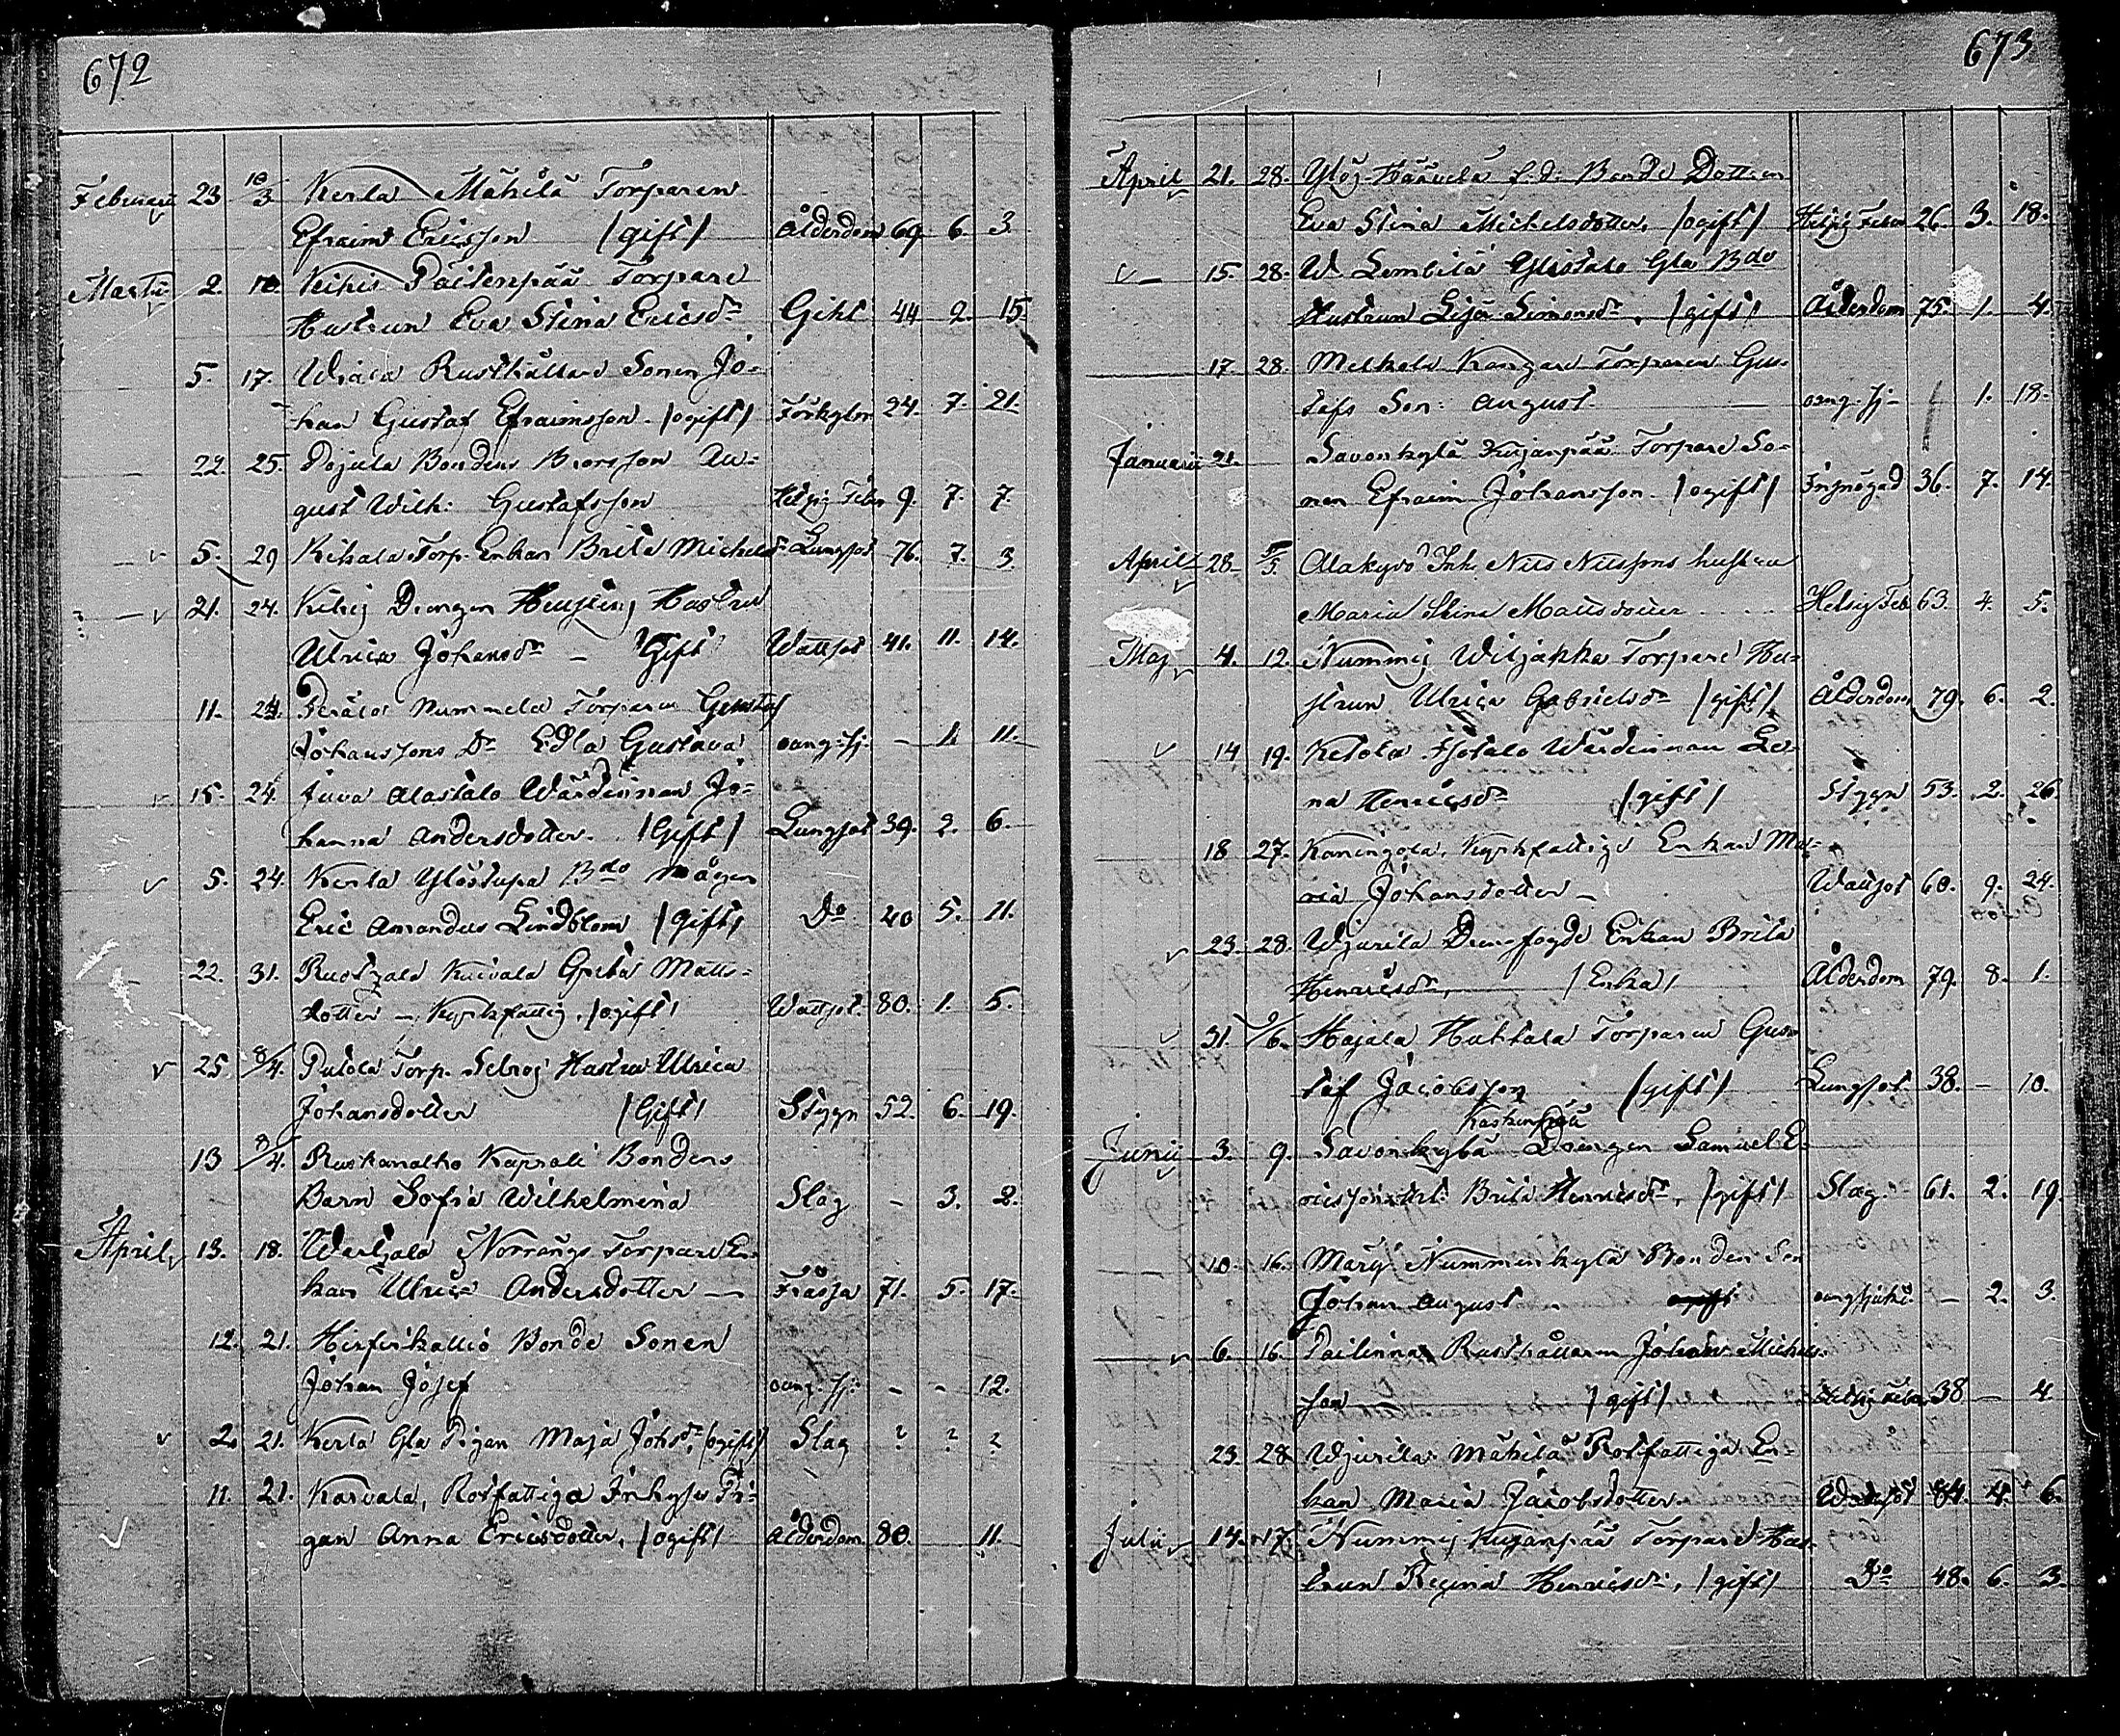 672
Februari 23 10/3 Kerla Mähilä Torparen
Efraim Ericsson /gift/ Ålderdom 69 6. 3.
Martii 2. 10. Keihis Päitenpää Torpare
Hustrun Eva Stina Ericsdr Gikt 44 2. 15
5. 17. Rusthållare Sonen Jo-
han Gustaf Efraimsson /ogift/ Förkyln 24. 7. 21
22. 25. Bondens Brorsson Au-
gust Wilh: Gustafsson 9. 7. 7.
5. 29 Kihala Torp. Enkan Brita Michelsdr Lungsot 76. 7. 3.
21. 24. Drengen Hustru
Ulrica Johansdr — Gift Wattsot 41. 11. 14.
11. 24. Peräla Nummela Torparen Gustaf
Johanssons Dr Edla Gustava oang. sj. — 1. 11.
15. 24. Juva Alastalo Wärdinnan Jo-
hanna Andersdotter. /Gift/ Lungsot 39. 2. 6.
5. 24. Kerla Ylöstupa Bdo Mågen
Eric Amandus Lindblom /gift/ Do 40 5. 11.
22. 31. Kuivala Greta Matts-
dotter — Kyrkfattig. /ogift/ Wattsot. 80. 1. 5.
25. 8/4. Torp. Hustru Ulrica
Johansdotter /Gift/ Stygn 52. 6. 19.
13 8/4. Ruskanalho Kaprali Bondens
Barn Sofia Wilhelmina Slag — 3. 2.
April 13. 18. Norrängs Torpare En-
kan Ulrica Andersdotter — Fråssa 71. 5. 17.
12. 21. Hirsenkallio Bonde Sonen
Johan Josef oang. sj: - - 12.
2. 21. Kerla Gla Pigan Maja Johsdr, /ogift/ Slag ? ? ?
11. 21. Karvala, Rotfattiga Inhyses Pi-
gan Anna Ericsdotter, /ogift/ Ålderdom 80. 11.
673
April 21. 28. f.d. Bonde Dottren
Eva Stina Michelsdotter, /ogift/ 26. 3. 18.
15. 28. W Lembilä Yliotalo Gla Bdo
Hustrun Lisa Simonsdr, /gift/ Ålderdom 75. 1. 4.
17. 28. Melkola Kangare Torparen Gus-
tafs Son: August oang. sj — 1. 18.
Januarii 21. Savonkylä Kujanpää Torpare So-
nen Efraim Johansson. /ogift/ 36. 7. 14.
April 28 5/5. Alakyrö Inh. Nils Nilssons hustru
Maria Stina Mattsdotter 63. 4. 5.
Maj 4. 12. Nummij Wiljakka Torpare Hu-
strun Ulrica Gabrielsdr /gift/ Ålderdom 79. 6. 2.
14 19. Ketola Isotalo Wärdinnan Le-
na Henricsdr /gift/ Stygn 53. 2. 26.
18 27. Kaningola, Kyrkfattige Enkan Ma-
ria Johansdotter — Wattsot 60. 9. 24.
23. 28. Wjurila Drengfogde Enkan Brita
Henricsdr, /Enka/ Ålderdom 79. 8. 1.
31. 9/6. Hajala Huhtala Torparen Gus-
taf Jacobsson /gift/ Lungsot 38. — 10.
Junii 3. 9. Savonkylä Drengen Samuel E-
ricssons Brita Henricsdr, /gift/ Slag. 61. 2. 19.
10. 16. Märij Numminkylä Bonden Son
Johan August — 2. 3.
6. 16. Pailinna Rusthållaren Johan Michels-
son /gift/ 38 — 4
23. 28 Wjurila Mähilä Rotfattiga En-
kan Maria Jacobsdotter Wattsot 84. 4. 6.
Julii 14. 17. Nummij Kujanpää Torpare Hus-
trun Regina Henricsdr, /gift/ Do 48. 6. 3.